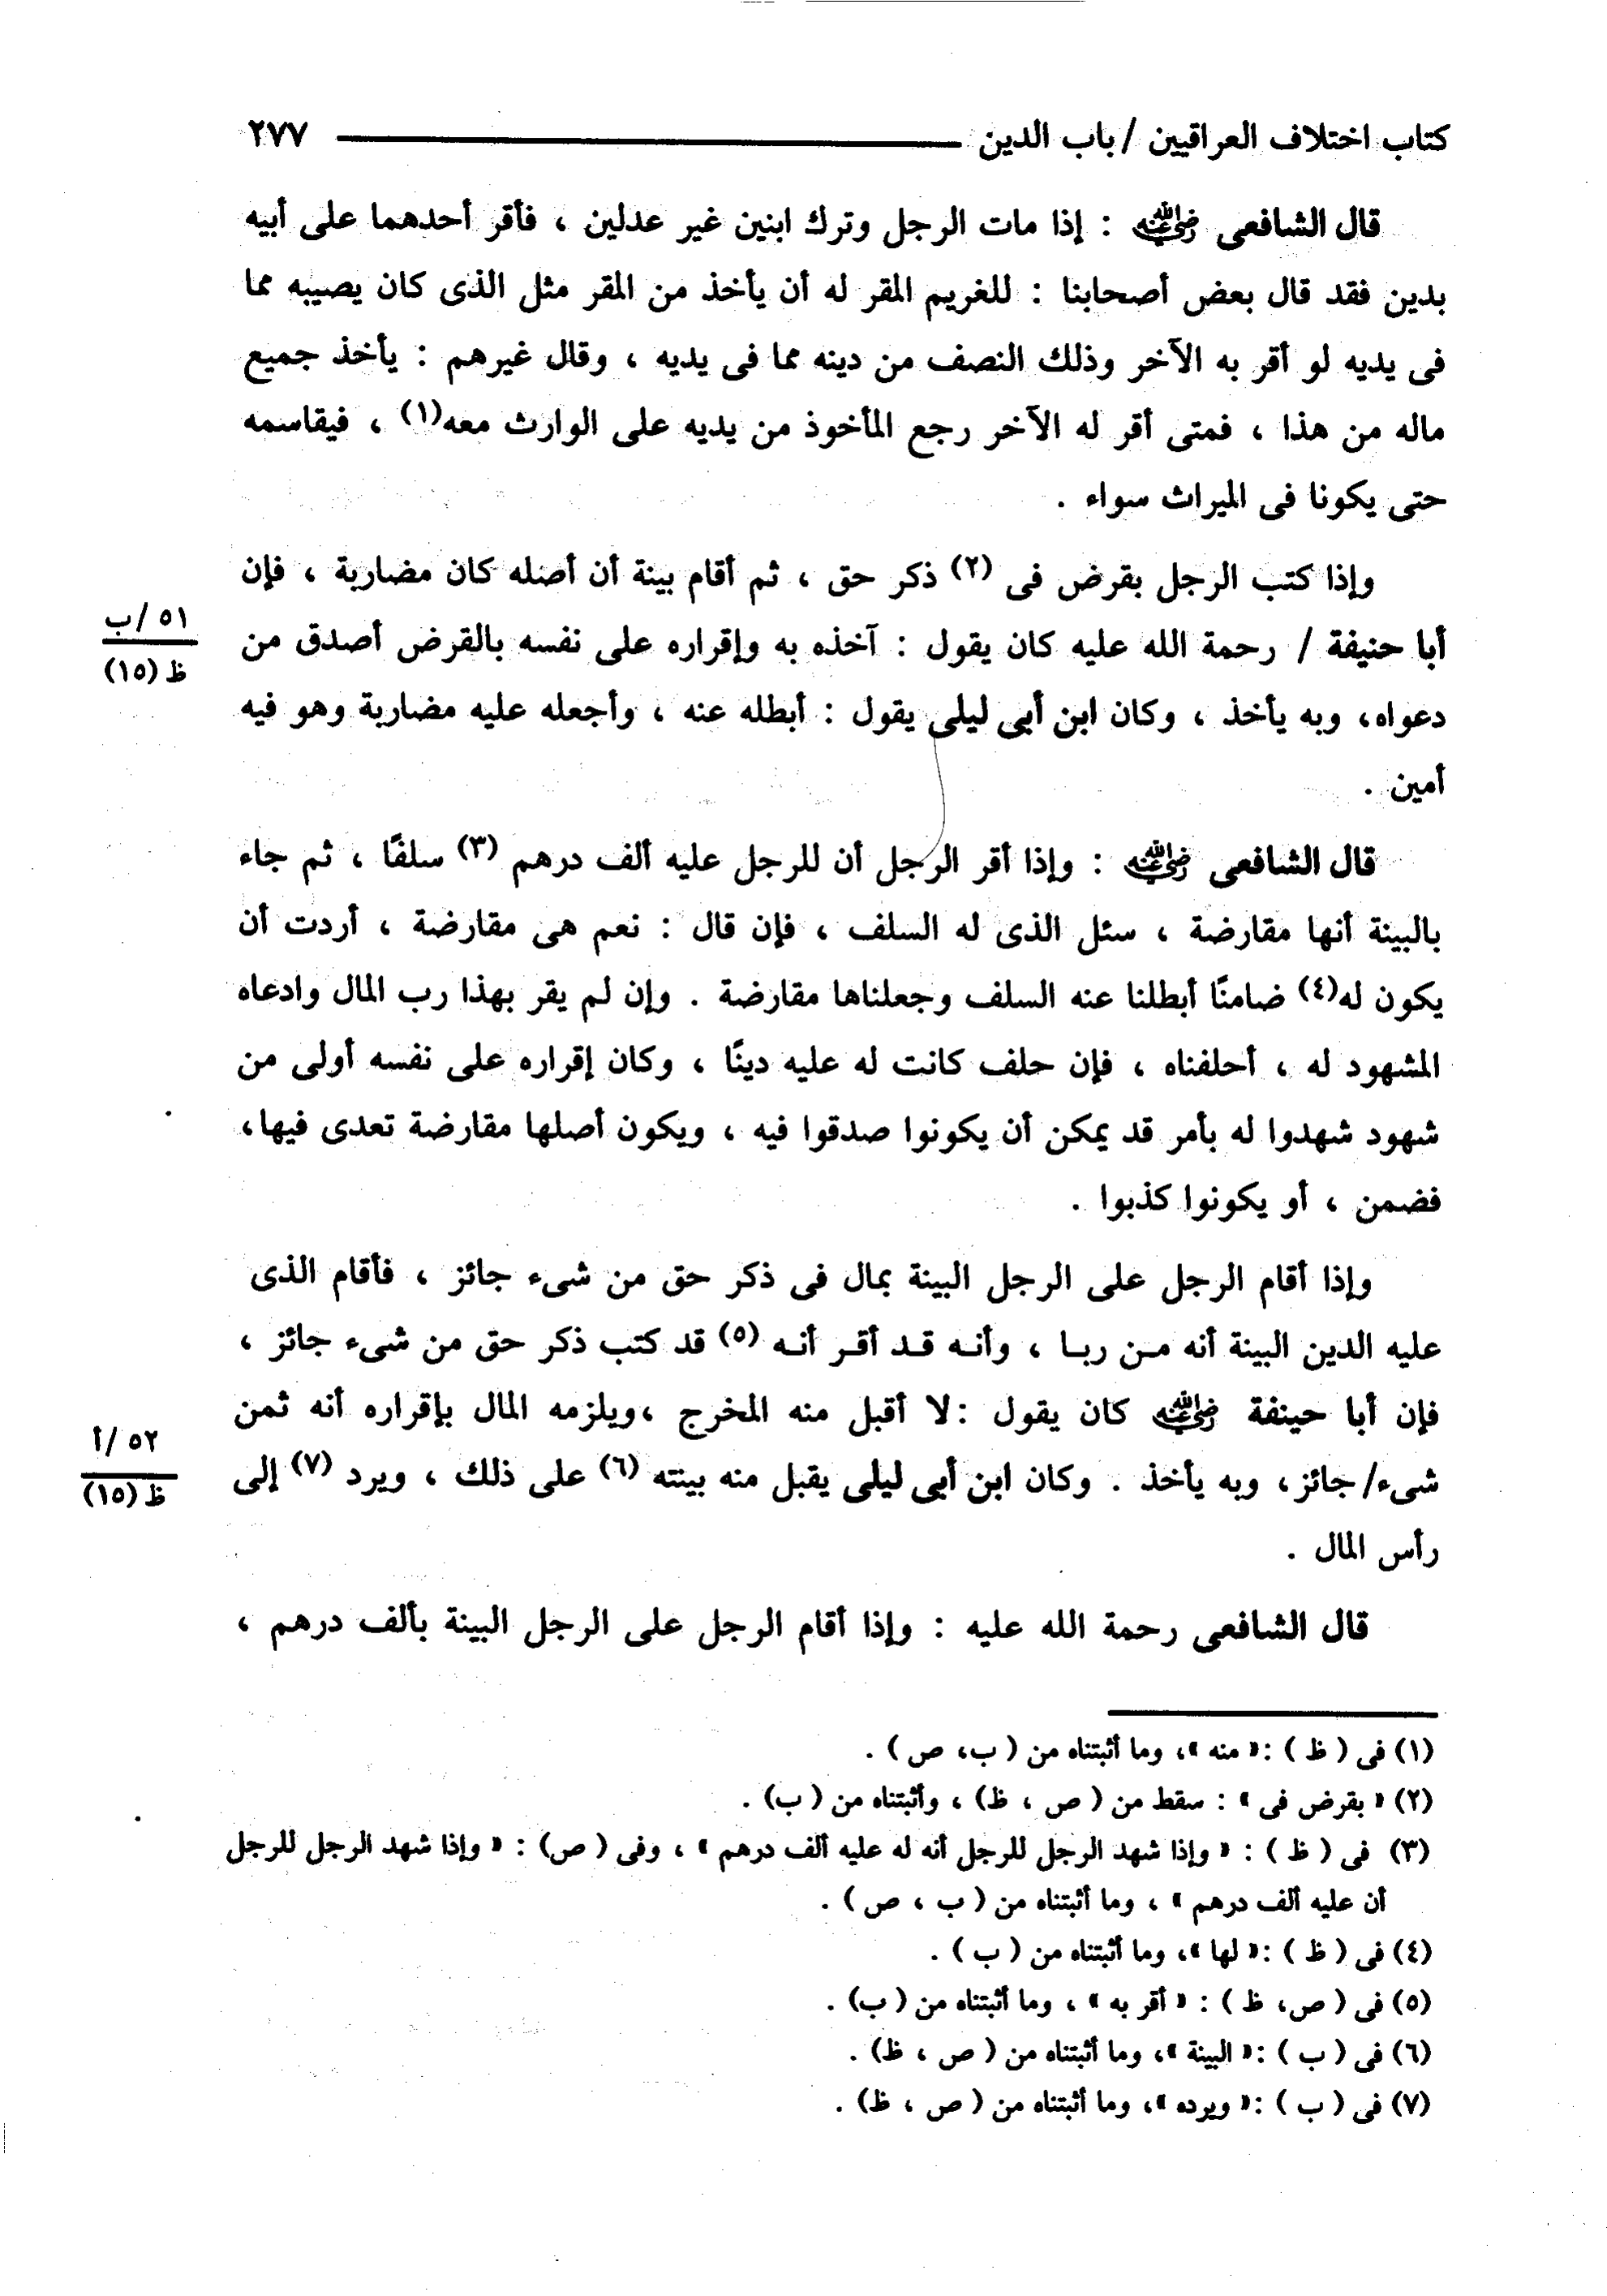 كتاب اختلاف العراقيين / باب الدين ٢٧٧
قال الشافعى رضي الله عنه : إذا مات الرجل وترك ابنين غير عدلين ، فأقر أحدهما على أبيه
بدين فقد قال بعض أصحابنا : للغريم المقر له أن يأخذ من المقر مثل الذى كان يصيبه مما
فى يديه لو أقر به الآخر وذلك النصف من دينه مما فى يديه ، وقال غيرهم : يأخذ جميع
ماله من هذا ، فمتى أقر له الآخر رجع المأخوذ من يديه على الوارث معه(١) ، فيقاسمه
حتى يكونا فى الميراث سواء .
وإذا كتب الرجل بقرض فى (٢) ذكر حق ، ثم أقام بينة أن أصله كان مضاربة ، فإن
٥١ /ب
أبا حنيفة / رحمة الله عليه كان يقول : آخذه به وإقراره على نفسه بالقرض أصدق من
ظ (١٥)
دعواه، وبه يأخذ ، وكان ابن أبى ليلى يقول : أبطله عنه ، وأجعله عليه مضاربة وهو فيه
أمين .
قال الشافعى رضي الله عنه : وإذا أقر الرجل أن للرجل عليه ألف درهم (٣) سلفًا ، ثم جاء
بالبينة أنها مقارضة ، سئل الذى له السلف ، فإن قال : نعم هى مقارضة ، أردت أن
يكون له(٤) ضامنًا أبطلنا عنه السلف وجعلناها مقارضة . وإن لم يقر بهذا رب المال وادعاه
المشهود له ، أحلفناه ، فإن حلف كانت له عليه دينًا ، وكان إقراره على نفسه أولى من
شهود شهدوا له بأمر قد يمكن أن يكونوا صدقوا فيه ، ويكون أصلها مقارضة تعدى فيها،
فضمن ، أو يكونوا كذبوا .
وإذا أقام الرجل على الرجل البينة بمال فى ذكر حق من شىء جائز ، فأقام الذى
عليه الدين البينة أنه مـن ربـا ، وأنـه قـد أقـر أنـه (٥) قد كتب ذكر حق من شىء جائز ،
فإن أبا حينفة رضي الله عنه كان يقول :لا أقبل منه المخرج ،ويلزمه المال بإقراره أنه ثمن
٥٢ /أ
شىء/ جائز، وبه يأخذ . وكان ابن أبى ليلى يقبل منه بينته (٦) على ذلك ، ويرد (٧) إلى
ظ (١٥)
رأس المال .
قال الشافعى رحمة الله عليه : وإذا أقام الرجل على الرجل البينة بألف درهم ،
(١) فى ( ظ ) :« منه »، وما أثبتناه من ( ب، ص ) .
(٢) « بقرض فى » : سقط من ( ص ، ظ) ، وأثبتناه من ( ب) .
(٣) فى ( ظ ) : « وإذا شهد الرجل للرجل أنه له عليه ألف درهم » ، وفى ( ص) : « وإذا شهد الرجل للرجل
أن عليه ألف درهم » ، وما أثبتناه من ( ب ، ص ) .
(٤) فى ( ظ ) :« لها »، وما أثبتناه من ( ب ) .
(٥) فى ( ص، ظ ) : « أقر به » ، وما أثبتناه من ( ب) .
(٦) فى ( ب ) :« البينة »، وما أثبتناه من ( ص ، ظ) .
(٧) فى ( ب ) :« ويرده »، وما أثبتناه من ( ص ، ظ) .